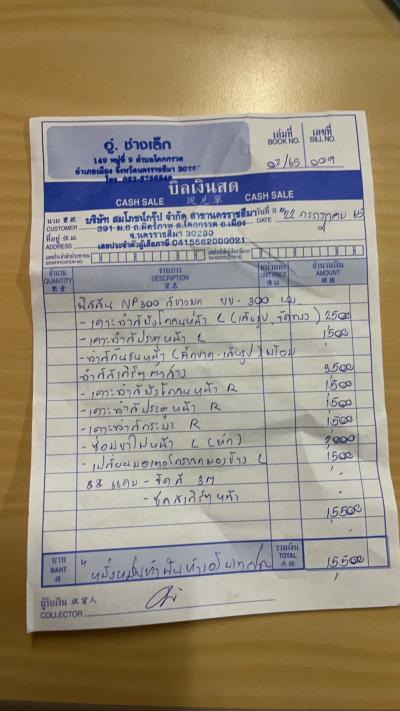 อู่. ช่างเล็ก
149 หมู่ที่ 9 ตำบลโคกกรวด
อำเภอเมือง จังหวัดนครราชสีมา 30280
เล่มที่ เลขที่
BOOK NO. BILL NO.
02/65 009
บิลเงินสด
CASH SALE 現兌單 CASH SALE
นาม
CUSTOMER บริษัท สมโภชน์กรุ๊ป จำกัด สาขานครราชสีมา วันที่
DATE 22 กรกฎาคม 65
ที่อยู่
ADDRESS 391 ม.6 ถ.มิตรภาพ ต.โคกกรวด อ.เมือง
จ.นครราชสีมา 30280
เลขประจำตัวผู้เสียภาษี 0415562000021
จำนวน รายการ หน่วยละ จำนวนเงิน
QUANTITY DESCRIPTION UNIT PRICE AMOUNT
數量 貨名 價值 銀碼
นิสสัน NP300 สีขาว
- เคาะทำสีบังโคลนหน้า L 2500
- เคาะทำสีประตูหน้า L 1500
- ทำสีกันชนหน้า
ทำสีสเกิร์ต 3500
- เคาะทำสีบังโคลนหน้า R 1500
- เคาะทำสีประตูหน้า R 1500
- เคาะทำสีกระบะ R 1500
- ซ่อมขาไฟหน้า L (หัก) 2000
- เปลี่ยนมอเตอร์กระจกมองข้าง L 1500
- ชุดสเกิร์ตหน้า
15500
บาท
BAHT หนึ่งหมื่นห้าพันห้าร้อยบาทถ้วน รวมเงิน
TOTAL 15500
ผู้รับเงิน 收貨人
COLLECTOR